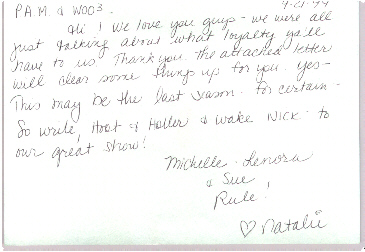 P.A.M. & WOO3.
9-21-94
Hi! We love you guys - we were all
just talking about what loyalty ya'll
have to us. Thank you. The attached letter
will clear some things up for you. yes -
This may be the last season - for certain -
So write, Hoot & Holler & wake NICK to
our great show!
Michelle - Lenora
& Sue
Rule!
♡ Natalie